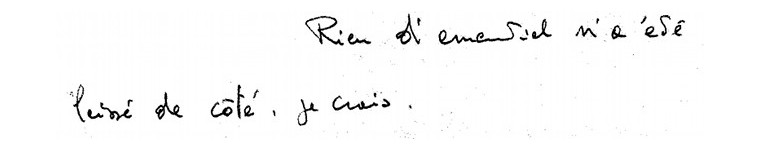 Rien d'essentiel n'a été
laissé de côté, je crois.